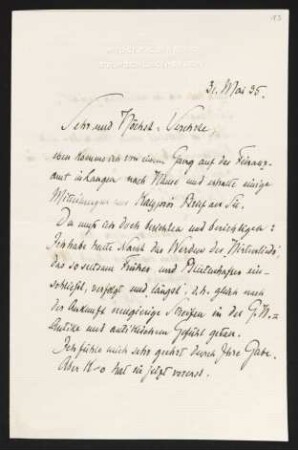 31. Mai 35.
Sehr und Höchst-Verehrte
eben komme ich von einem Gang auf das Finanz-
amt in Langen nach Hause und erhalte einige
Mitteilungen aus Kalypsos Brief an Sie.
Da muß ich doch beichten und berichtigen:
Ich habe heute Nacht das Werden des Hirtenlieds,
das so seltsam Früher- und Pentschaften ein-
schließt, verfolgt und d. h. gleich nach
der Ankunft neugierige Streifen in der
Antike und antikischem Gefühl getan.
Ich fühle mich sehr geehrt durch Ihre Gabe.
Aber K-o hat sie jetzt vorerst.